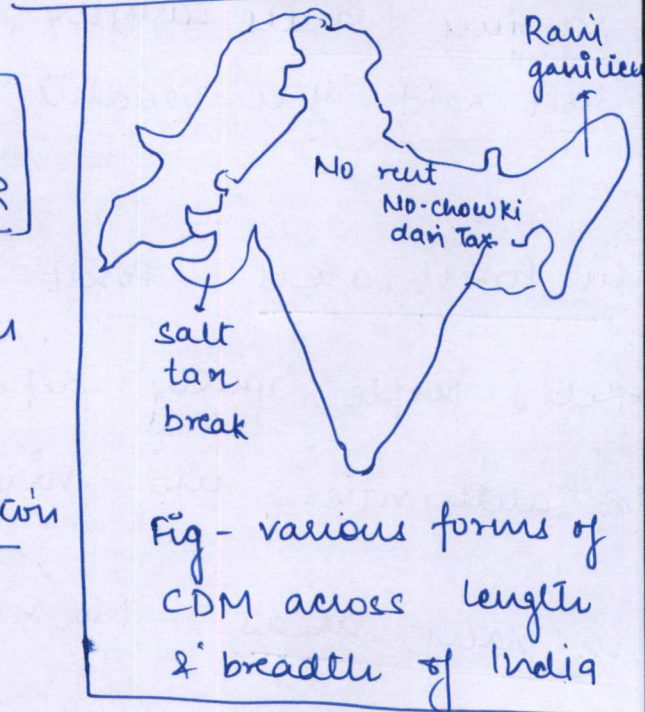 Rani
ganilieu
No rent
No-chowki
dari Tax
salt
tax
break
Fig - various forms of
CDM across length
& breadth of India